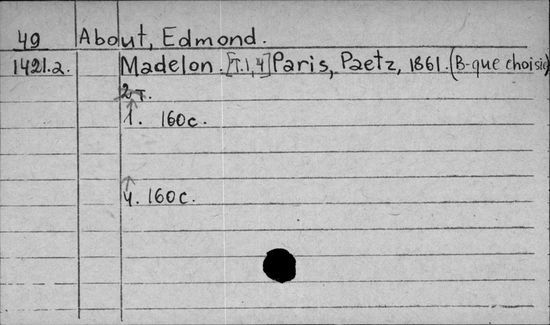 49 About, Edmond.
1421.2. Madelon. [T.1,4] Paris, Paetz, 1861. (B-que choisie)
2 т.
1. 160 c.
4. 160 c.